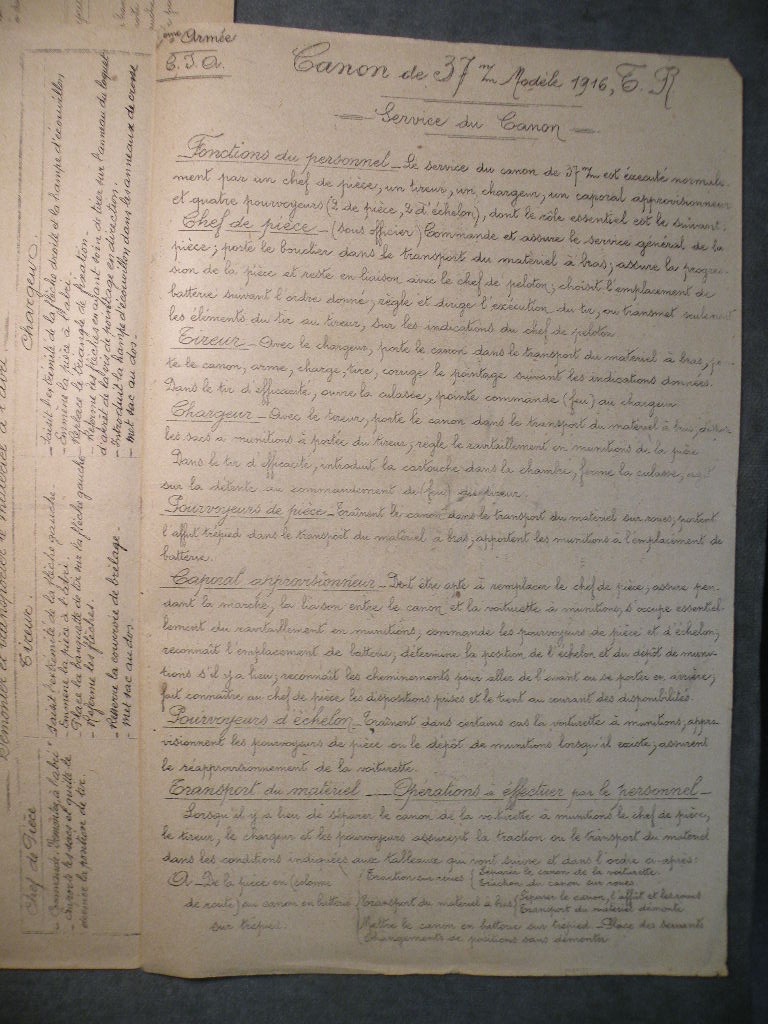 ème Armée
C.I.A.
Canon de 37 m/m Modèle 1916, T. R
Service du Canon
Fonctions du personnel _ Le service du canon de 37 m/m est exécuté normale
ment par un chef de pièce, un tireur, un chargeur, un caporal approvisionneur
et quatre pourvoyeurs (2 de pièce, 2 d'échelon), dont le rôle essentiel est le suivant.
Chef de pièce _ (sous officier) Commande et assure le service général de la
pièce; porte le bouclier dans le transport du matériel à bras; assure la progres-
sion de la pièce et reste en liaison avec le chef de peloton; choisit l'emplacement de
batterie suivant l'ordre donné; règle et dirige l'exécution du tir, ou transmet seulement
les éléments du tir au tireur, sur les indications du chef de peloton
Tireur _ Avec le chargeur, porte le canon dans le transport du matériel à bras,
te le canon, arme, charge, tire, corrige le pointage suivant les indications données.
Dans le tir d'efficacité, ouvre la culasse, pointe commande (feu) au chargeur
Chargeur _ Avec le tireur, porte le canon dans le transport du matériel à bras,
les sacs à munitions à portée du tireur; règle le ravitaillement en munitions de la pièce
Dans le tir d'efficacité, introduit la cartouche dans la chambre, ferme la culasse,
sur la détente au commandement de (feu) du tireur.
Pourvoyeurs de pièce _ Traînent le canon dans le transport du matériel sur roues; portent
l'affut trépied dans le transport du matériel à bras; apportent les munitions à l'emplacement de
batterie.
Caporal approvisionneur _ Doit être apte à remplacer le chef de pièce; assure pen-
dant la marche, la liaison entre le canon et la voiturette à munitions, s'occupe essentiel-
lement du ravitaillement en munitions, commande les pourvoyeurs de pièce et d'échelon;
reconnaît l'emplacement de batterie; détermine la position de l'échelon et du dépôt de muni-
tions s'il y a lieu; reconnaît les cheminements pour aller de l'avant ou se porter en arrière;
fait connaître au chef de pièce les dispositions prises et le tient au courant des disponibilités.
Pourvoyeurs d'échelon _ Traînent dans certains cas la voiturette à munitions, appro-
visionnent les pourvoyeurs de pièce ou le dépôt de munitions lorsqu'il existe, assurent
le réapprovisionnement de la voiturette.
Transport du matériel _ Opérations à effectuer par le personnel _
Lorsqu'il y a lieu de séparer le canon de la voiturette à munitions le chef de pièce,
le tireur, le chargeur et les pourvoyeurs assurent la traction ou le transport du matériel
dans les conditions indiquées aux tableaux qui vont suivre et dans l'ordre ci-après:
A _ De la pièce en colonne
de route au canon en batterie
sur trépied:
Traction sur roues
Séparer le canon de la voiturette
Traction du canon sur roues
Transport du matériel à bras
Séparer le canon, l'affût et les roues
Transport du matériel démonté
Mettre le canon en batterie sur trépied _ Place des servants
Changements de positions sans démonter
Démonter et transporter le matériel à l'abri
Chef de Pièce
- Commande: Démontez, à l'abri
- Ouvrir les sacs et quitte la
dernière la position de tir.
Tireur.
- Saisit l'extrémité de la flèche gauche.
- Emmène la pièce à l'abri.
- Place la banquette de tir sur la flèche gauche
- Referme les flèches.
- Resserre la courroie de brêlage.
- Met sac au dos.
Chargeur.
- Saisit l'extrémité de la flèche droite et la hampe d'écouvillon
- Emmène la pièce à l'abri.
- Replace le triangle de fixation.
- Referme les flèches en ayant soin de tirer sur l'anneau du loquet
d'arrêt de la vis de pointage en direction.
- Introduit la hampe d'écouvillon dans les anneaux de crosse
- Met sac au dos.